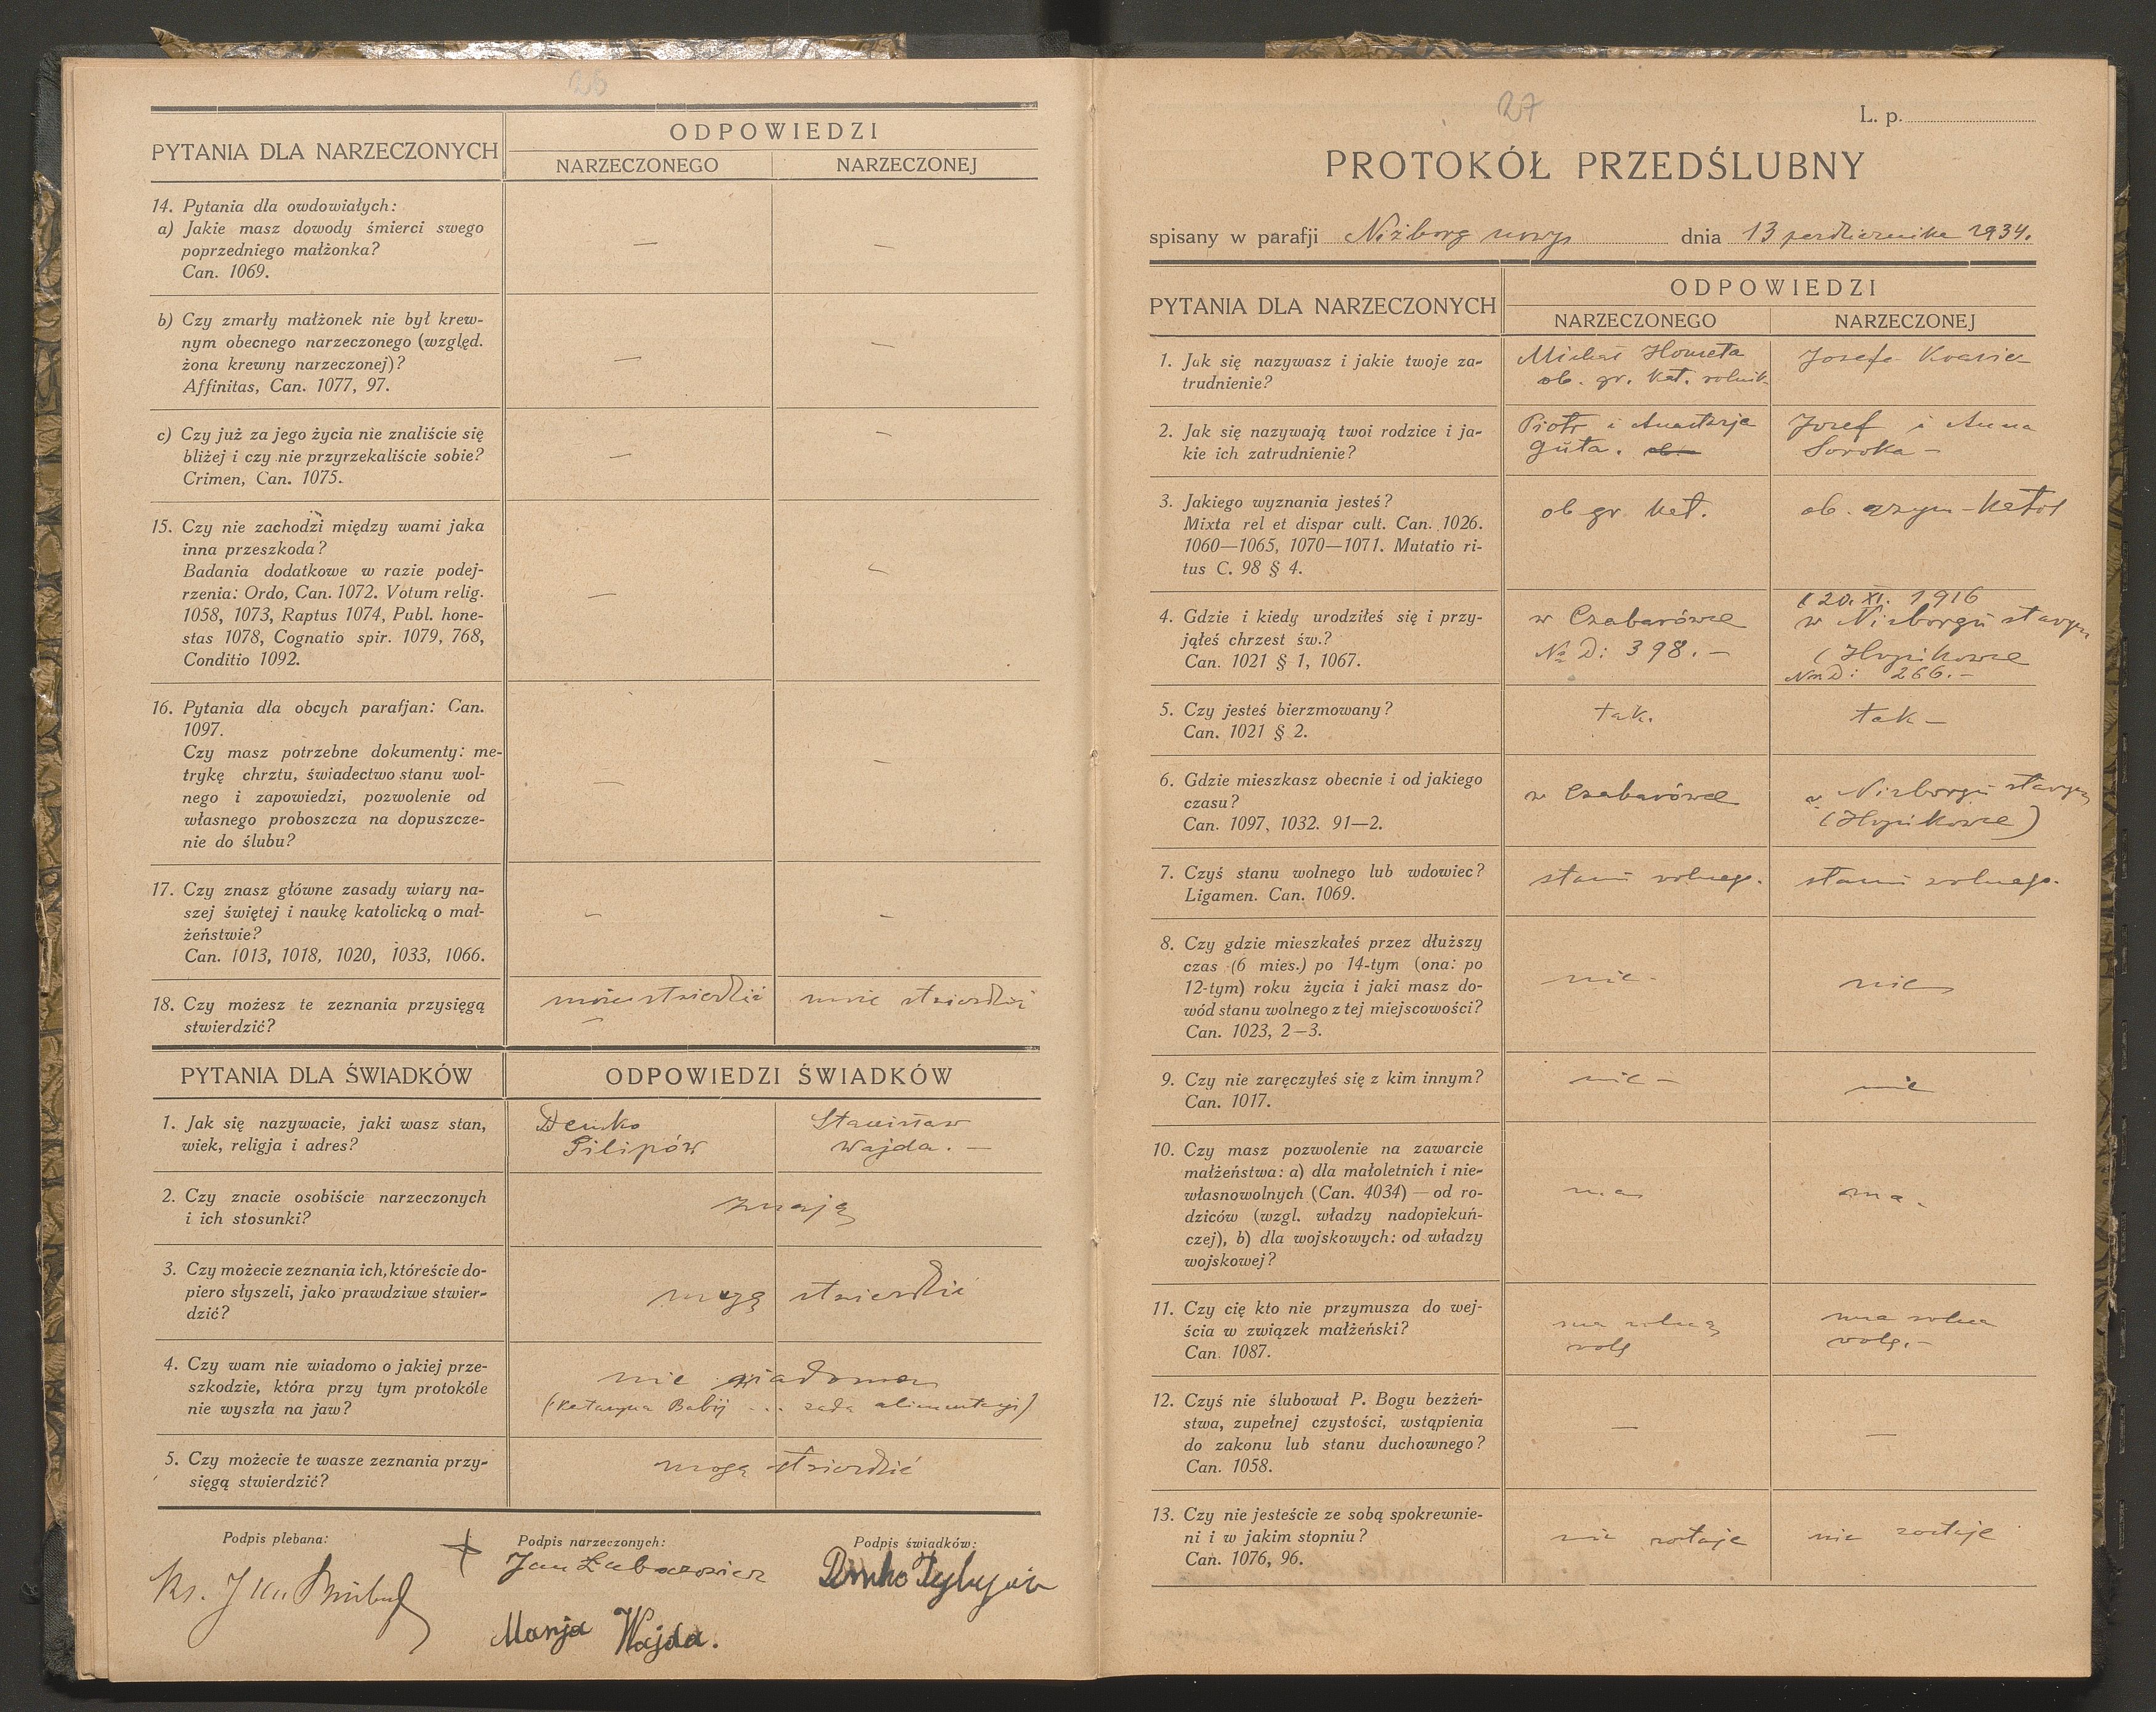 26
PYTANIA DLA NARZECZONYCH
ODPOWIEDZI
NARZECZONEGO
NARZECZONEJ
14. Pytania dla owdowiałych:
a) Jakie masz dowody śmierci swego
poprzedniego małżonka?
Can. 1069.
—
—
b) Czy zmarły małżonek nie był krew-
nym obecnego narzeczonego (względ.
żona krewny narzeczonej)?
Affinitas, Can. 1077, 97.
—
—
c) Czy już za jego życia nie znaliście się
bliżej i czy nie przyrzekaliście sobie?
Crimen, Can. 1075.
—
—
15. Czy nie zachodzi między wami jaka
inna przeszkoda?
Badania dodatkowe w razie podej-
rzenia: Ordo, Can. 1072. Votum relig.
1058, 1073, Raptus 1074, Publ. hone-
stas 1078, Cognatio spir. 1079, 768,
Conditio 1092.
—
—
16. Pytania dla obcych parafjan: Can.
1097.
Czy masz potrzebne dokumenty: me-
trykę chrztu, świadectwo stanu wol-
nego i zapowiedzi, pozwolenie od
własnego proboszcza na dopuszcze-
nie do ślubu?
—
—
17. Czy znasz główne zasady wiary na-
szej świętej i naukę katolicką o mał-
żeństwie?
Can. 1013, 1018, 1020, 1033, 1066.
—
—
18. Czy możesz te zeznania przysięgą
stwierdzić?
może stwierdzić
—
może stwierdzić
PYTANIA DLA ŚWIADKÓW
ODPOWIEDZI ŚWIADKÓW
1. Jak się nazywacie, jaki wasz stan,
wiek, religja i adres?
Demko
Pilipów
Stanisław
Wajda. —
2. Czy znacie osobiście narzeczonych
i ich stosunki?
znają
3. Czy możecie zeznania ich, któreście do-
piero słyszeli, jako prawdziwe stwier-
dzić?
mogą stwierdzić
4. Czy wam nie wiadomo o jakiej prze-
szkodzie, która przy tym protokóle
nie wyszła na jaw?
nie wiadomo
(Katarzyna Babij ... żąda alimentacji)
5. Czy możecie te wasze zeznania przy-
sięgą stwierdzić?
mogą stwierdzić
Podpis plebana:
Podpis narzeczonych:
Podpis świadków:
Ks. Jan
Jan
Manja Wajda.
Demko
27
L. p.
PROTOKÓŁ PRZEDŚLUBNY
spisany w parafji Niżborg nowy dnia 13 października 1934.
PYTANIA DLA NARZECZONYCH
ODPOWIEDZI
NARZECZONEGO
NARZECZONEJ
1. Jak się nazywasz i jakie twoje za-
trudnienie?
Michał
ob. gr. kat. rolnik
Josefa
2. Jak się nazywają twoi rodzice i ja-
kie ich zatrudnienie?
Piotr i Anastazja
Guta.
Josef i Anna
Soroka —
3. Jakiego wyznania jesteś?
Mixta rel et dispar cult. Can. 1026.
1060—1065, 1070—1071. Mutatio ri-
tus C. 98 § 4.
ob gr. kat.
ob. rzym-katol
4. Gdzie i kiedy urodziłeś się i przy-
jąłeś chrzest św.?
Can. 1021 § 1, 1067.
w Czabarówce
№ D: 398. —
20. XI. 1916
w Nizborgu starym
(Hrynkowce
Nr D: 266. —
5. Czy jesteś bierzmowany?
Can. 1021 § 2.
tak.
tak —
6. Gdzie mieszkasz obecnie i od jakiego
czasu?
Can. 1097, 1032. 91—2.
w Czabarówce
w Nizborgu starym
(Hrynkowce)
7. Czyś stanu wolnego lub wdowiec?
Ligamen. Can. 1069.
stanu wolnego.
stanu wolnego.
8. Czy gdzie mieszkałeś przez dłuższy
czas (6 mies.) po 14-tym (ona: po
12-tym) roku życia i jaki masz do-
wód stanu wolnego z tej miejscowości?
Can. 1023, 2—3.
nie
nie
9. Czy nie zaręczyłeś się z kim innym?
Can. 1017.
nie —
nie
10. Czy masz pozwolenie na zawarcie
małżeństwa: a) dla małoletnich i nie-
własnowolnych (Can. 4034) — od ro-
dziców (wzgl. władzy nadopiekuń-
czej), b) dla wojskowych: od władzy
wojskowej?
ma
ma.
11. Czy cię kto nie przymusza do wej-
ścia w związek małżeński?
Can. 1087.
ma wolną
wolę
ma wolną
wolę. —
12. Czyś nie ślubował P. Bogu bezżeń-
stwa, zupełnej czystości, wstąpienia
do zakonu lub stanu duchownego?
Can. 1058.
—
—
13. Czy nie jesteście ze sobą spokrewnie-
ni i w jakim stopniu?
Can. 1076, 96.
nie
nie